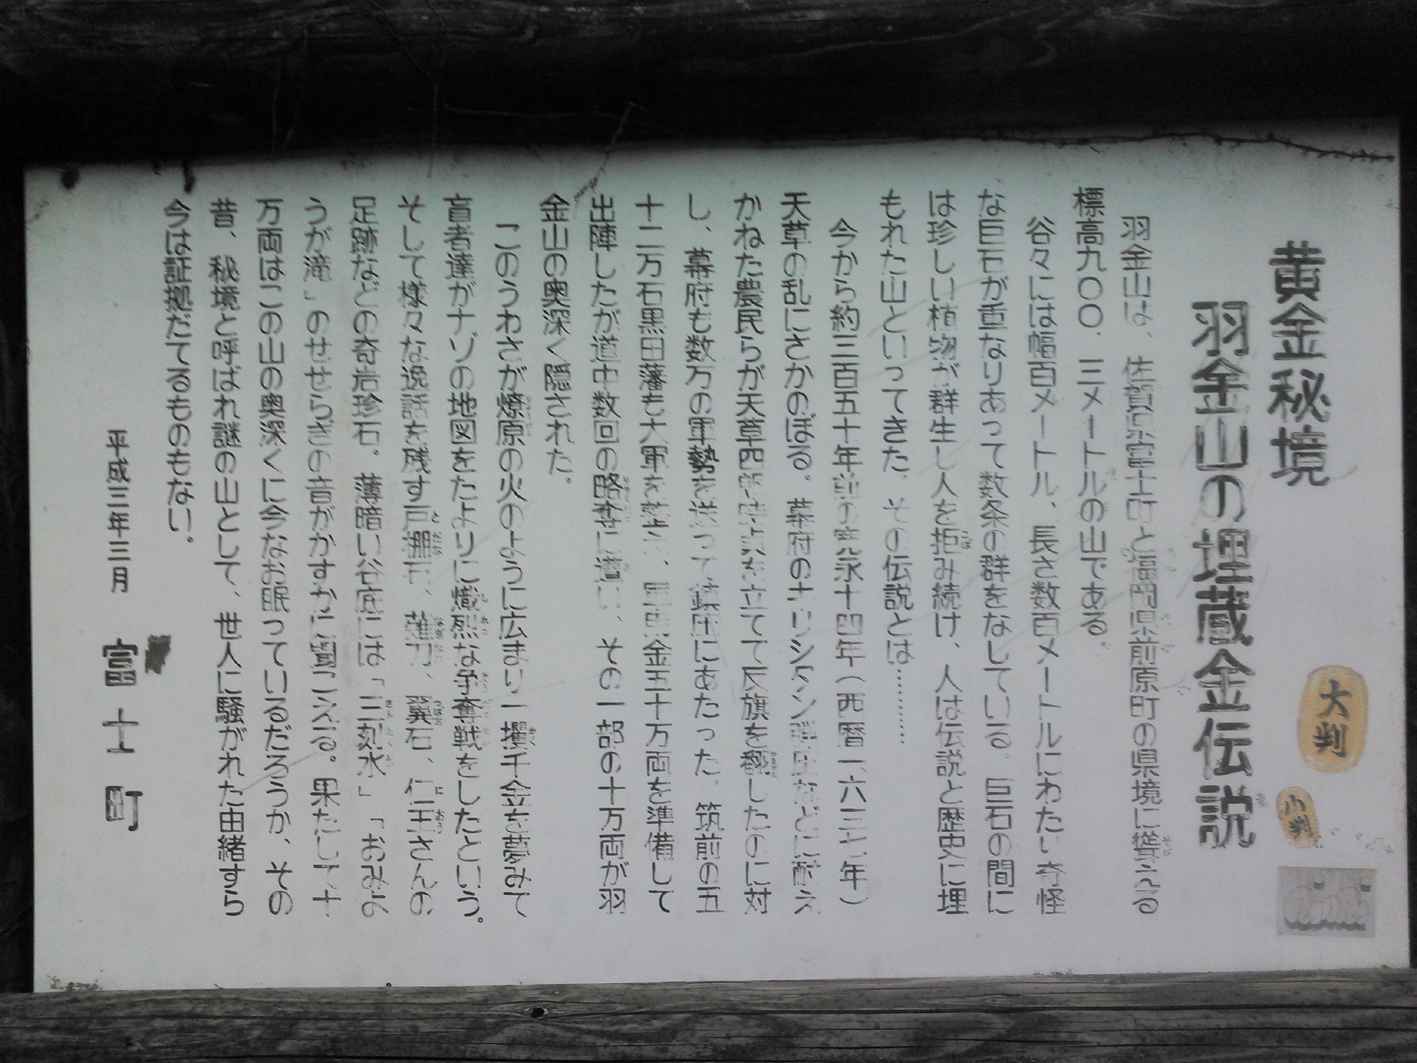 黄金秘境
羽金山の埋蔵金伝説
大判
小判
羽金山は、佐賀県富士町と福岡県前原町の県境に聳える
標高九〇〇．三メートルの山である。
谷々には幅百メートル、長さ数百メートルにわたり奇怪
な巨石が重なりあって数条の群をなしている。巨石の間に
は珍しい植物が群生し人を拒み続け、人は伝説と歴史に埋
もれた山といってきた。その伝説とは…………
今から約三百五十年前の寛永十四年（西暦一六三七年）
天草の乱にさかのぼる。幕府のキリシタン弾圧などに耐え
かねた農民らが天草四郎時貞を立てて反旗を翻したのに対
し、幕府も数万の軍勢を送って鎮圧にあたった。筑前の五
十二万石黒田藩も大軍を整え、軍用金五十万両を準備して
出陣したが道中数回の略奪に遭い、その一部の十万両が羽
金山の奥深く隠された。
このうわさが燎原の火のように広まり一攫千金を夢みて
盲者達がナゾの地図をたよりに熾烈な争奪戦をしたという。
そして様々な逸話を残す戸棚石、薙刀、翼石、仁王さんの
足跡などの奇岩珍石。薄暗い谷底には「三刻水」「おみよ
うが滝」のせせらぎの音がかすかに聞こえる。果たして十
万両はこの山の奥深くに今なお眠っているだろうか、その
昔、秘境と呼ばれ謎の山として、世人に騒がれた由緒すら
今は証拠だてるものもない。
平成三年三月　富士町